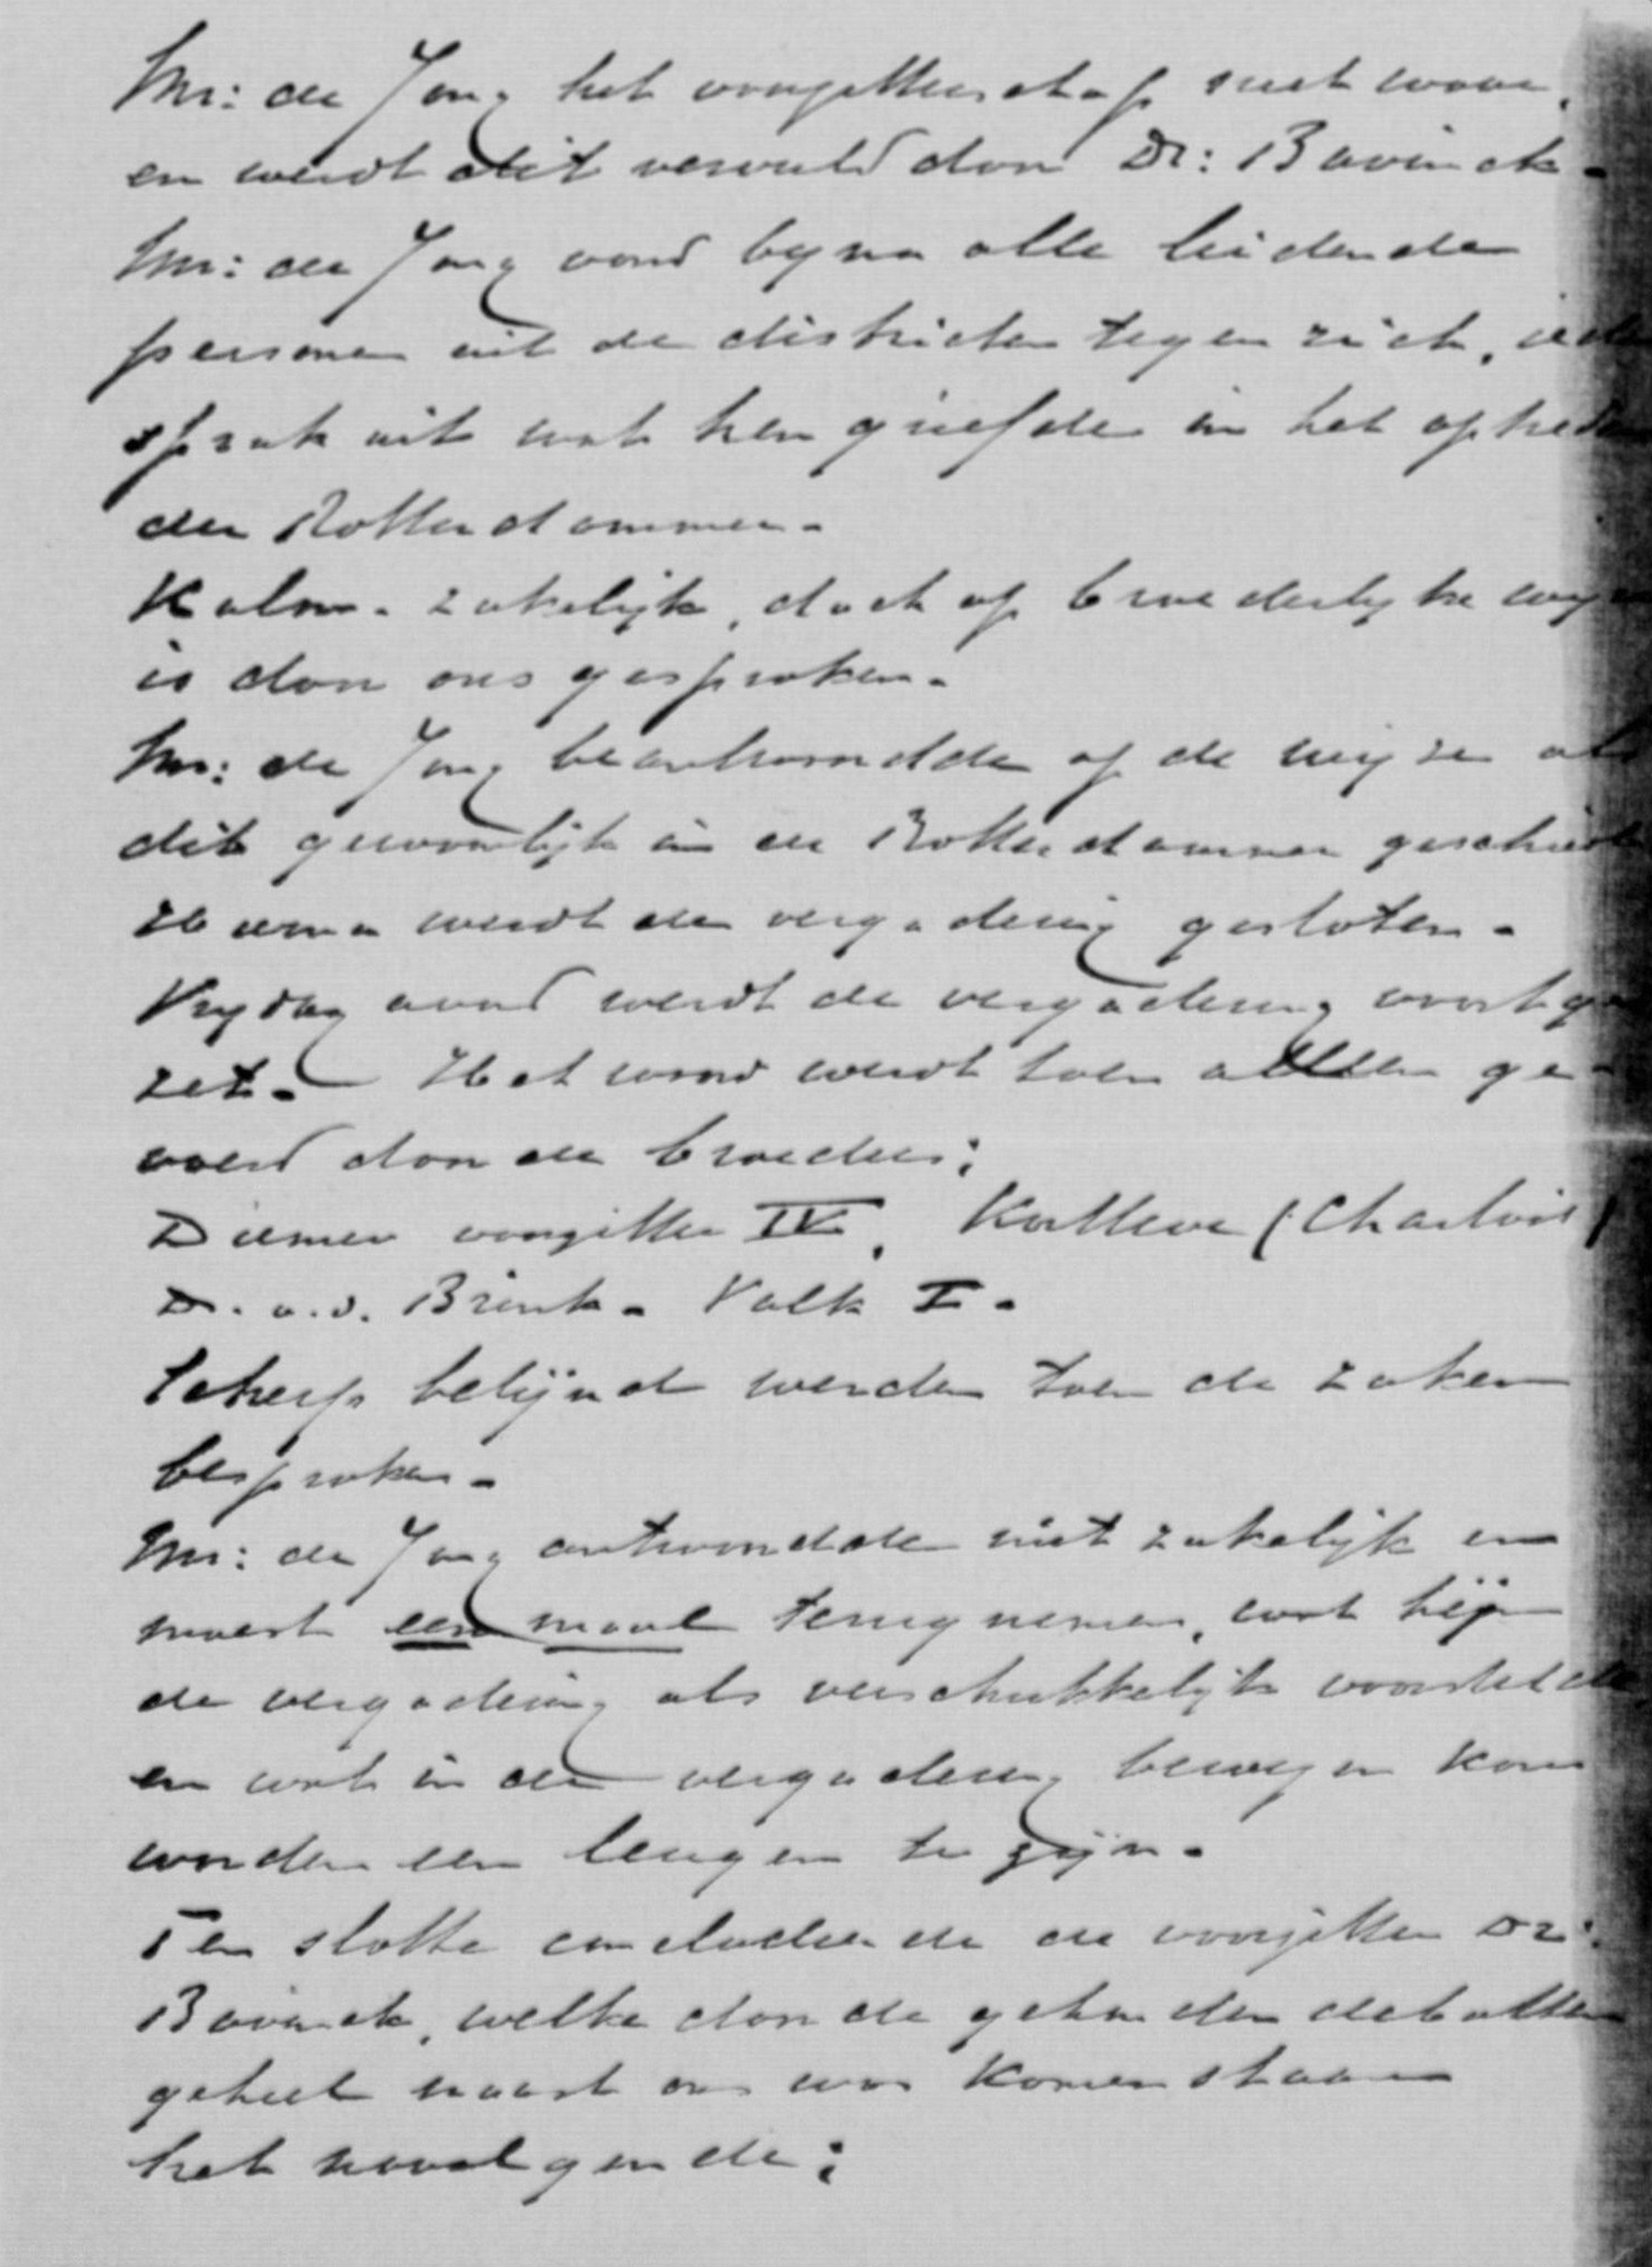 Mr: de Jong het voorzitterschap niet waar,
en werdt dit vervuld door Dr: Bavinck.
Mr: de Jong vond byna alle leidende
personen uit de districten tegen zich,
sprak uit wat hen griefde in het optreden
der Rotterdammer.
Kalm. zakelijk, doch op broederlyke wyze
is door ons gesproken.
Mr: de Jong beantwoordde op de wijze als
dit gewoonlijk in de Rotterdammer geschiedt
Hierna werdt de vergadering gesloten.
Vrydag avond werdt de vergadering voortge
zet. Het woord werdt toen alleen ge-
voerd door de broeders:
Diemer voorzitter IV, Kortleve (Charlois)
D. v.d. Brink. Valk I.
Scherp belijnd werden toen de zaken
besproken.
Mr: de Jong antwoordde niet zakelijk en
moest een maal terugnemen, wat hij
de vergadering als verschrikkelijk voorstelde
en wat in de vergadering bewezen kon
worden een leugen te zijn.
Ten slotte concludeerde de voorzitter Dr:
Bavinck, welke door de gehouden debatten
geheel naast ons was komen staan
het navolgende: